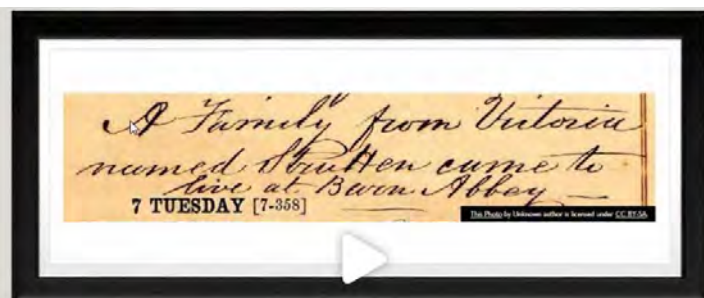 A Family from Victoria
named Strutten came to
live at Baron Abbey —
7 TUESDAY [7-358]
This Photo by Unknown author is licensed under CC BY-SA.